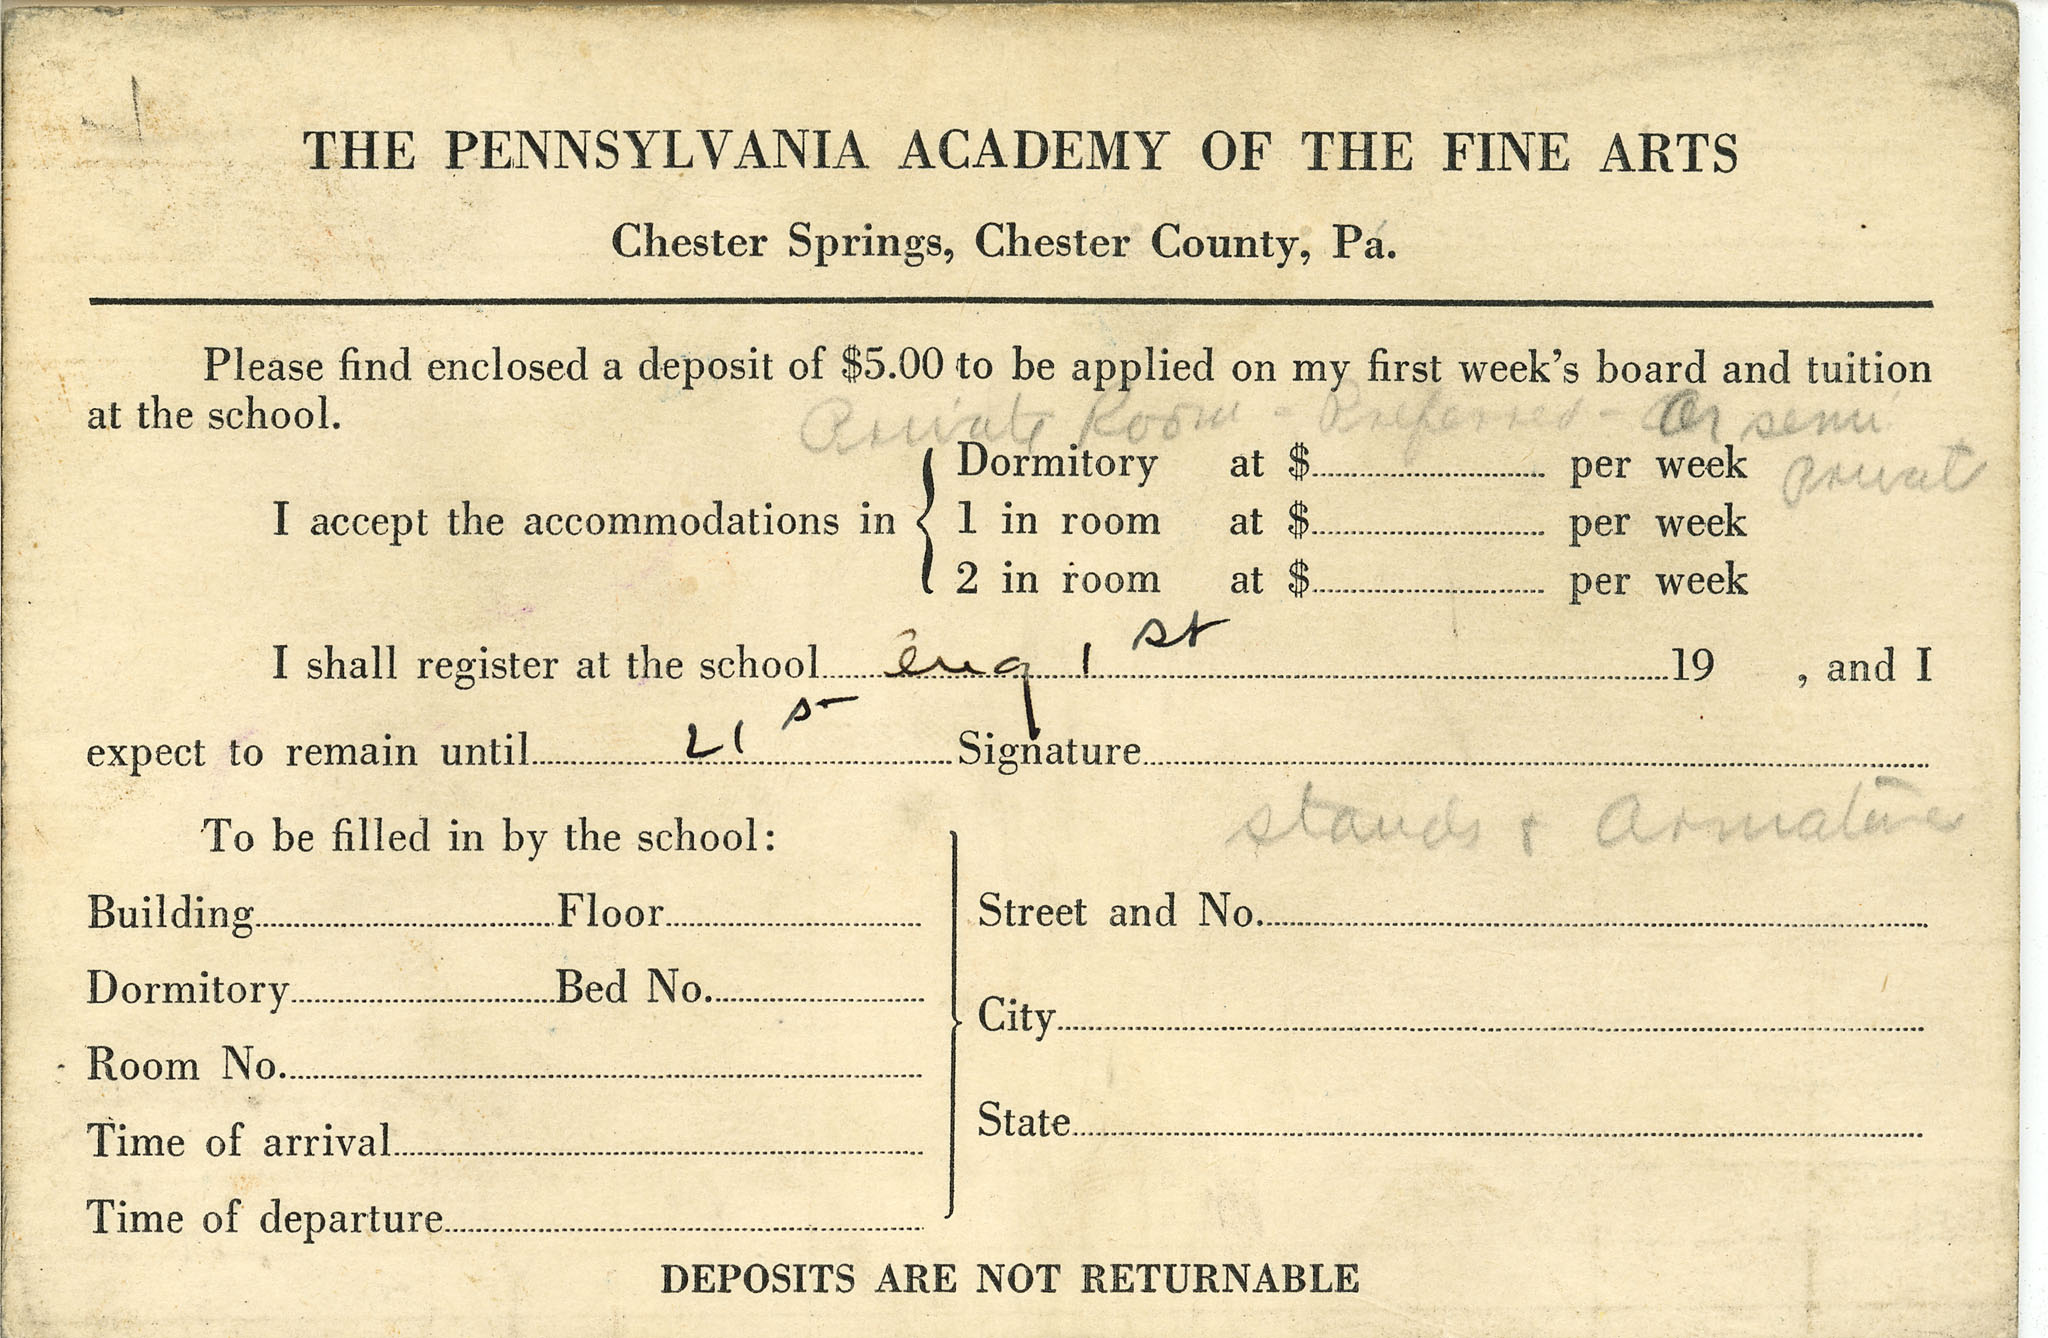 THE PENNSYLVANIA ACADEMY OF THE FINE ARTS
Chester Springs, Chester County, Pa.
Please find enclosed a deposit of $5.00 to be applied on my first week's board and tuition
at the school.
Private Room - Preferred - Or semi
private
Dormitory at $ per week
I accept the accommodations in 1 in room at $ per week
2 in room at $ per week
I shall register at the school 1st 19 , and I
expect to remain until 21s Signature
stands & Armatures
To be filled in by the school:
Building Floor
Dormitory Bed No.
Room No.
Time of arrival
Time of departure
Street and No.
City
State
DEPOSITS ARE NOT RETURNABLE